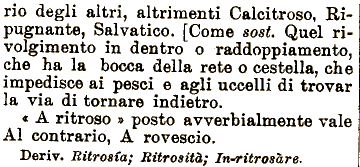 rio degli altri, altrimenti Calcitroso, Ri-
pugnante, Salvatico. [Come sost. Quel ri-
volgimento in dentro o raddoppiamento,
che ha la bocca della rete o cestella, che
impedisce ai pesci e agli uccelli di trovar
la via di tornare indietro.
« A ritroso » posto avverbialmente vale
Al contrario, A rovescio.
Deriv. Ritrosía; Ritrosità; In-ritrosàre.